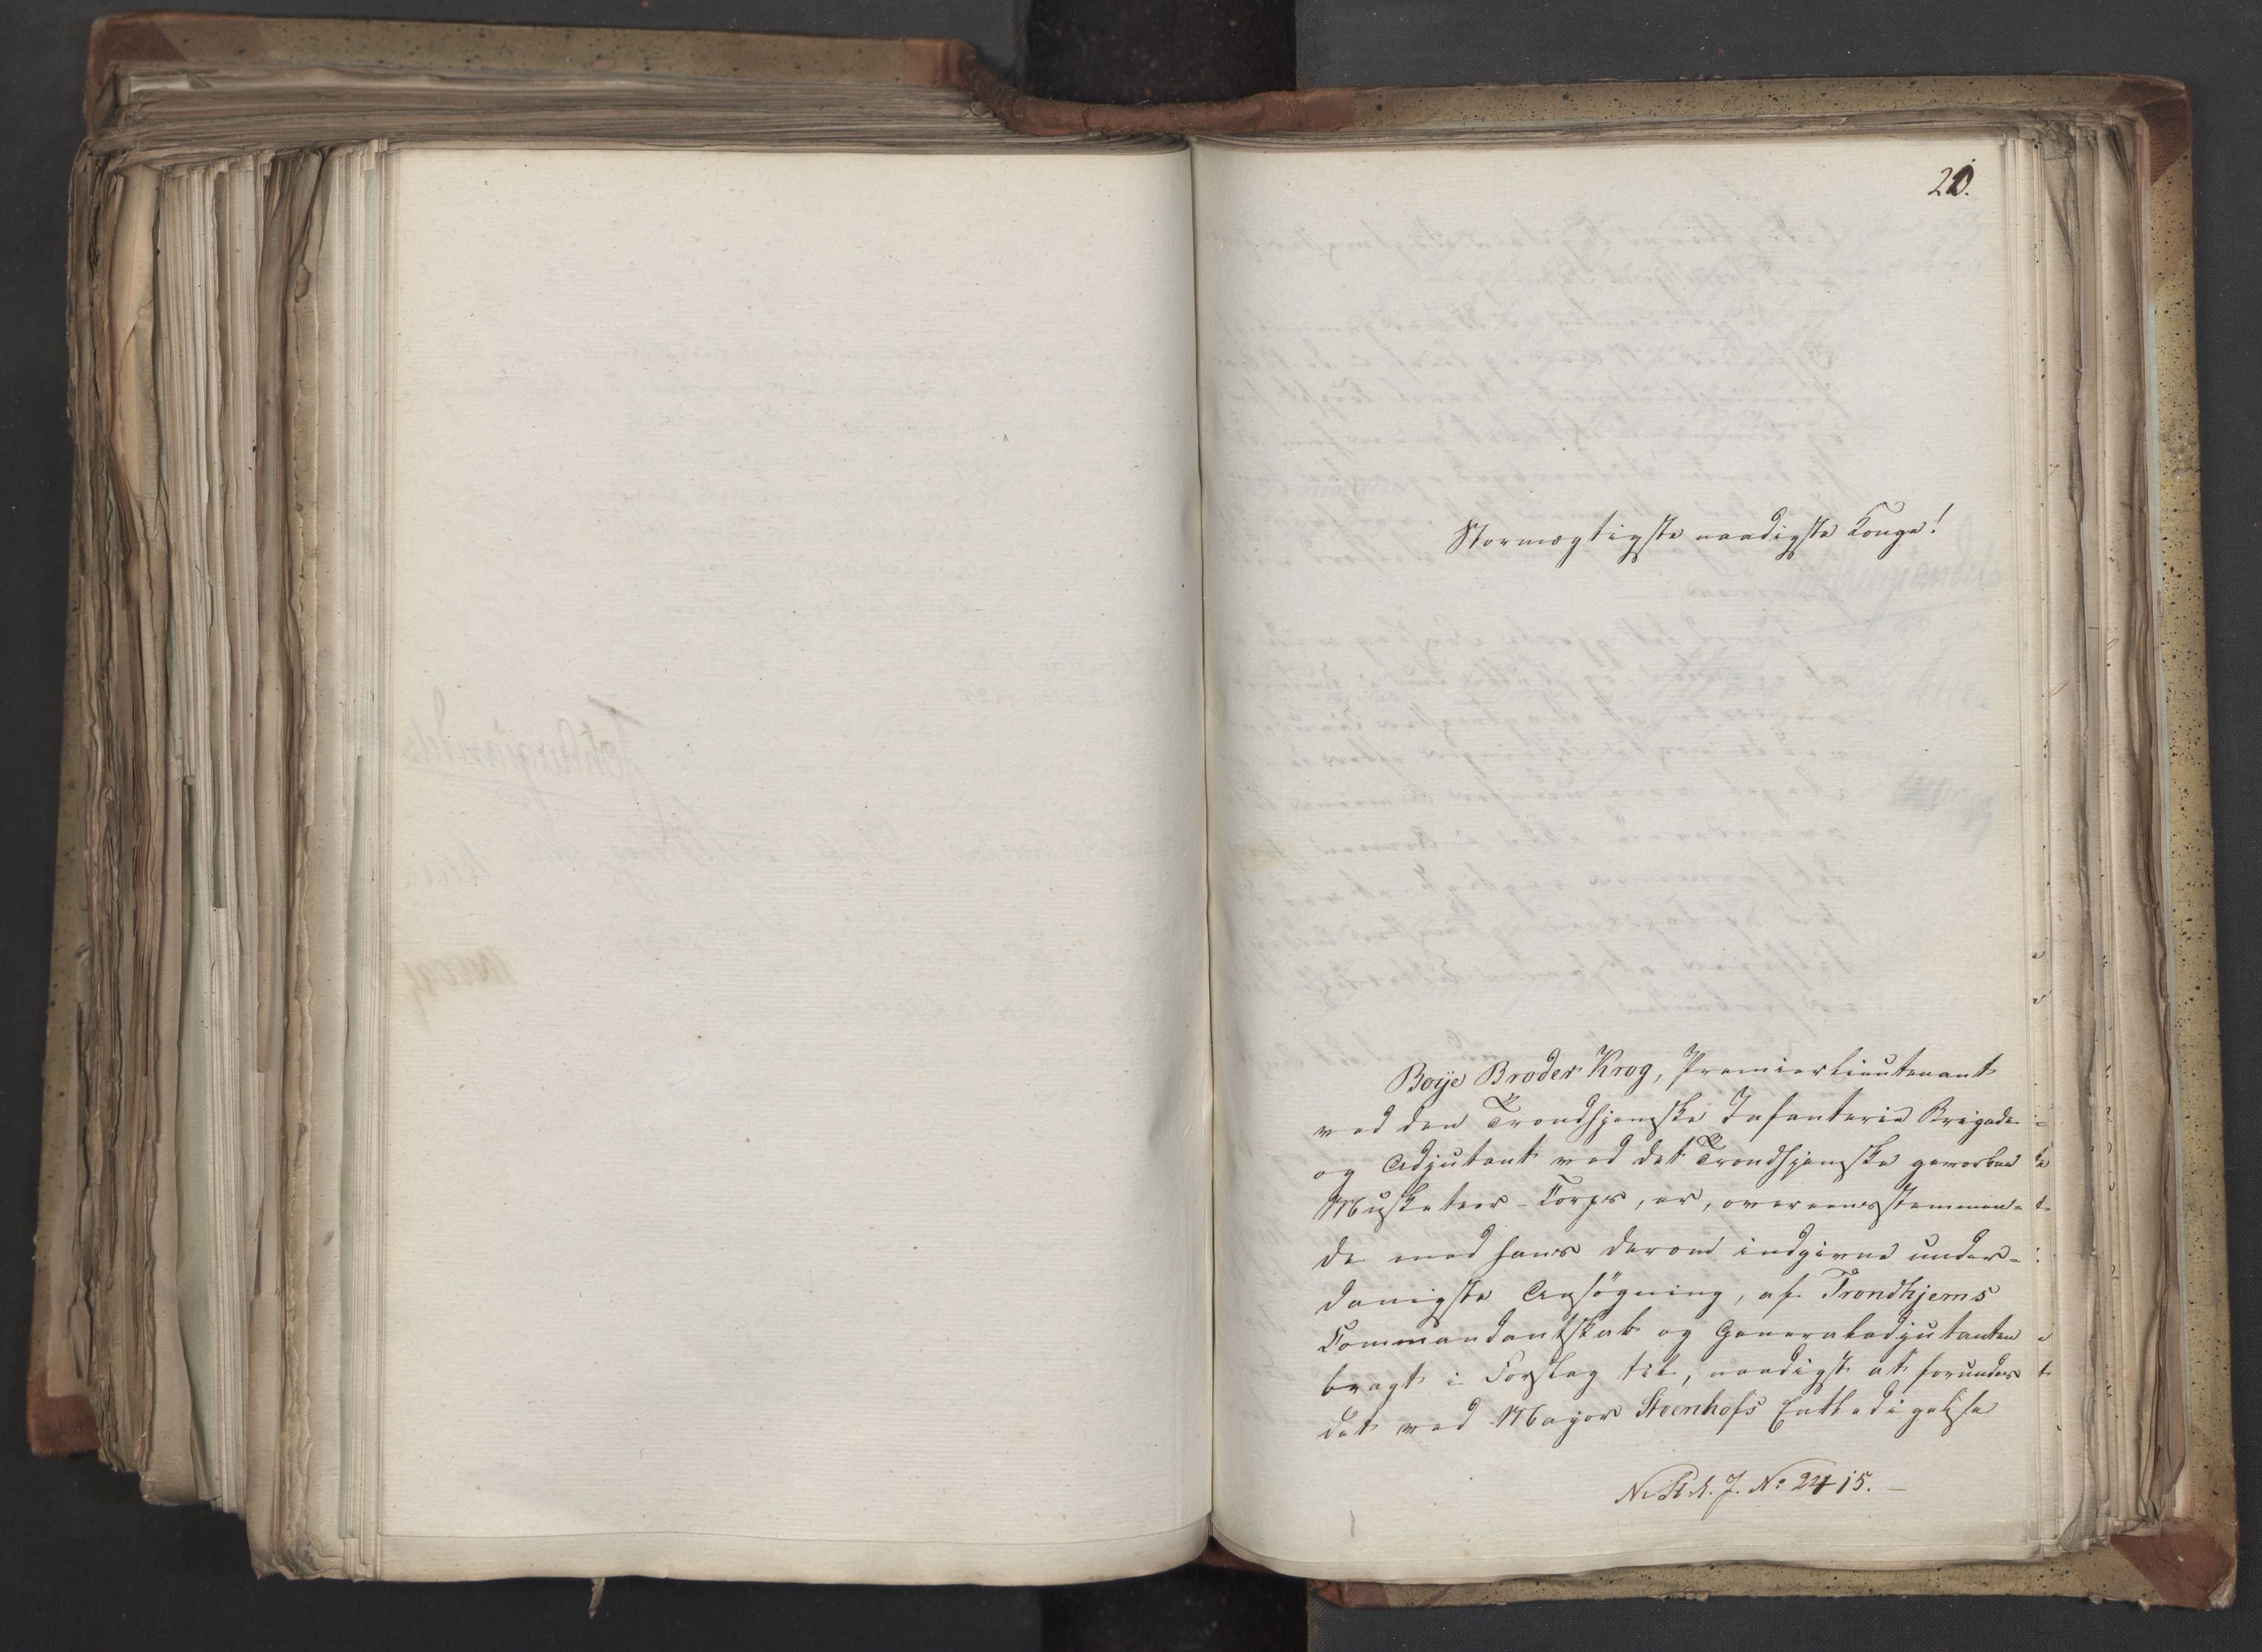 20.
Stormægtigste naadigste Konge!
Boije Broder Krog, Premierlieutenant
ved den Trondhjemske Infanterie Brigade
og Adjutant ved det Trondhjemske gevorbne
Musketeer-Corps, er, overeensstemmen-
de med hans derom indgivne under-
danigste Ansögning, af Trondhjems
Commandantskab og Generaladjutanten
bragt i Forslag til, naadigst at forundes
det ved Major Steenhofs Entledigelse
N. A. J. No 2415.